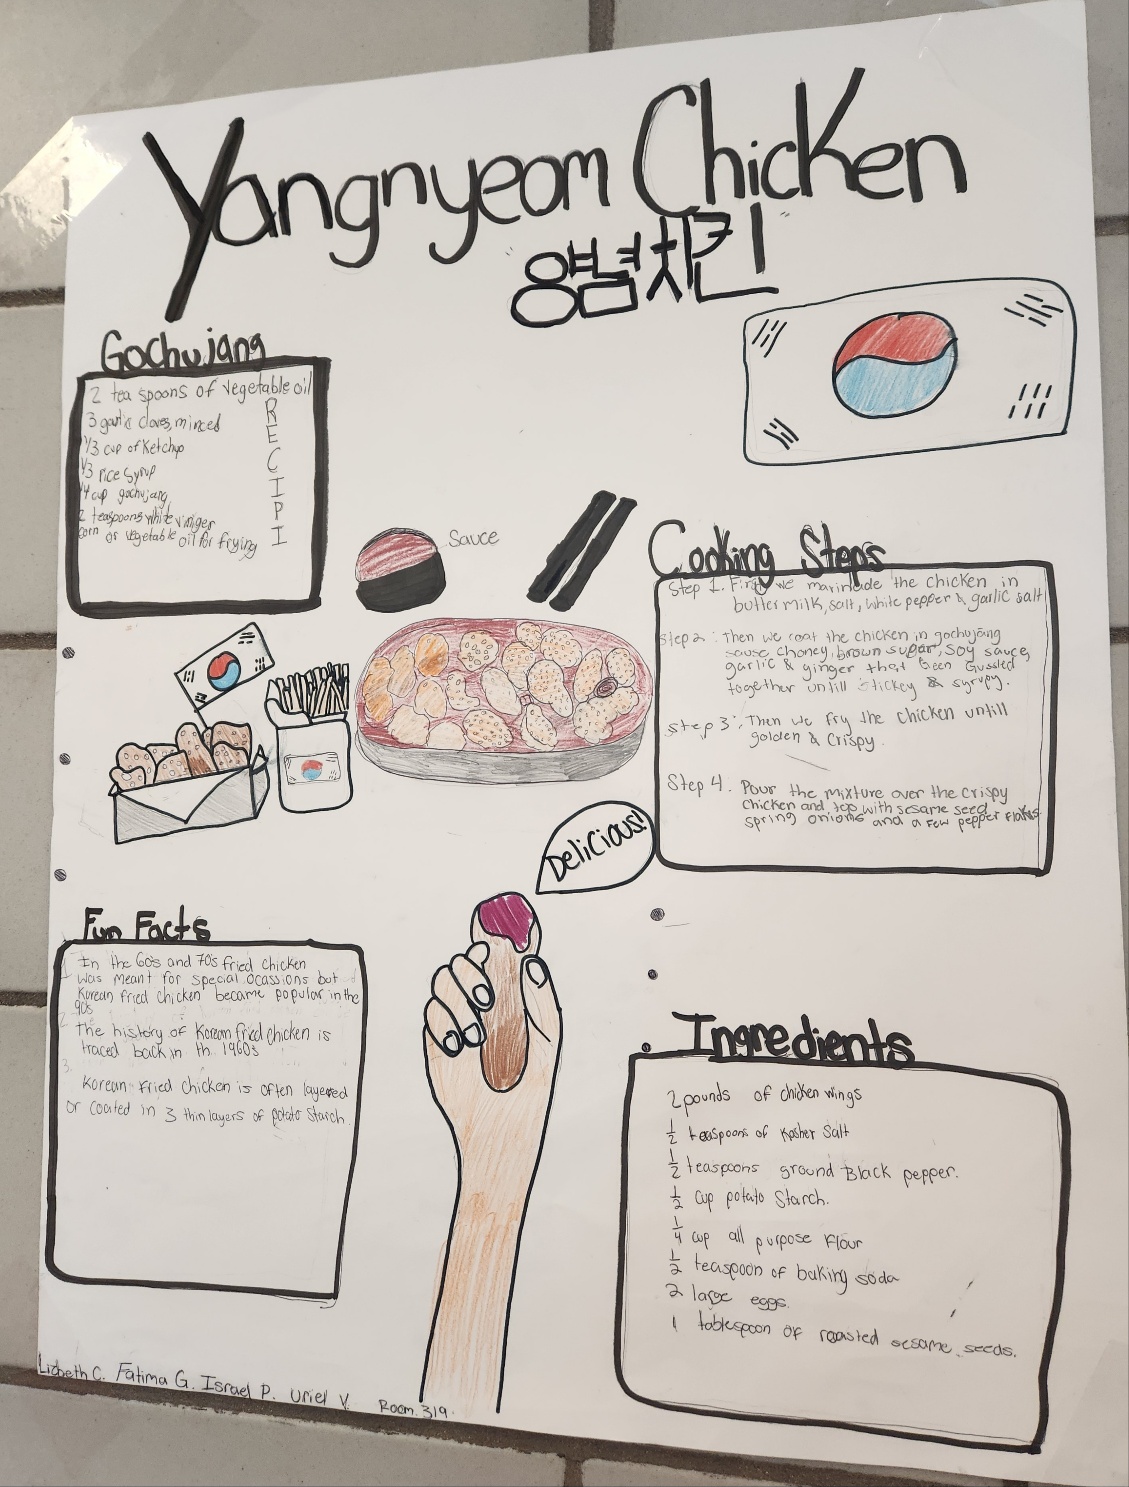 Yangnyeom Chicken
양념치킨
Gochujang
2 tea spoons of vegetable oil
3 garlic cloves, minced
1/3 cup of Ketchup
1/3 rice syrup
1/4 cup gochujang
2 teaspoons white vinger
corn or vegetable oil for frying
RECIPI
Sauce
Cooking Steps
Step 1. First we marinade the chicken in
butter milk, salt, white pepper & garlic salt
Step 2: Then we coat the chicken in gochujang
sause choney, brown sugar, soy sauce,
garlic & ginger that been Gussled
together untill stickey & syrupy.
Step 3: Then we fry the chicken untill
golden & crispy.
Step 4. Pour the mixture over the crispy
chicken and top with sesame seed
spring onions and a few pepper flakes.
Delicious!
Fun Facts
1. In the 60s and 70s fried chicken
was meant for special ocassions but
Korean fried chicken became popular in the
90s
2. The history of Korean fried chicken is
traced back in th 1960s
3.
Korean Fried chicken is often layered
or coated in 3 thin layers of potato starch.
Ingredients
2 pounds of chicken wings
1/2 teaspoons of Kosher Salt
1/2 teaspoons ground Black pepper.
1/2 cup potato Starch.
1/4 cup all purpose Flour
1/2 teaspoon of baking soda
2 large eggs.
1 tablespoon of roasted sesame seeds.
Lizbeth C. Fatima G. Israel P. Uriel V. Room. 319